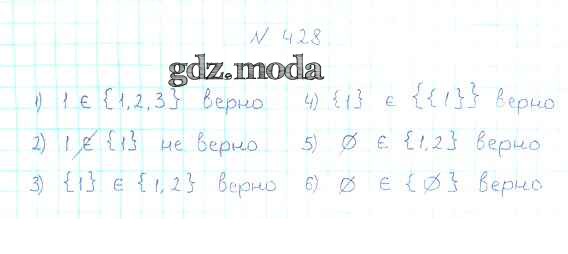 № 428
gdz.moda
1) 1 ∈ {1,2,3} верно 4) {1} ∈ {{1}} верно
2) 1 ∉ {1} не верно 5) ∅ ∈ {1,2} верно
3) {1} ∈ {1,2} верно 6) ∅ ∈ {∅} верно